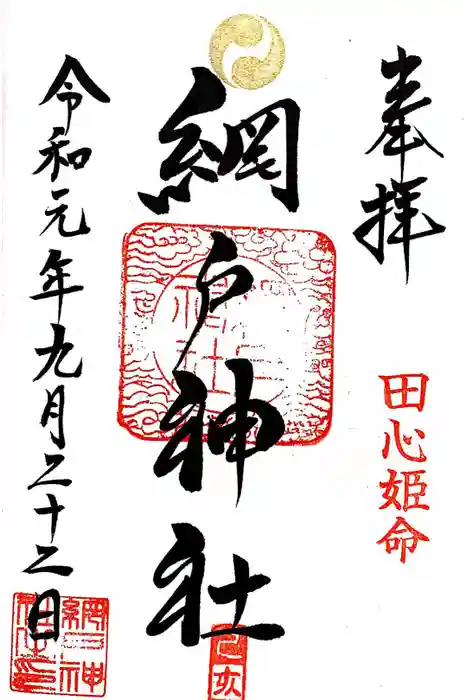 奉拝
田心姫命
網戸神社
己亥
令和元年九月二十二日